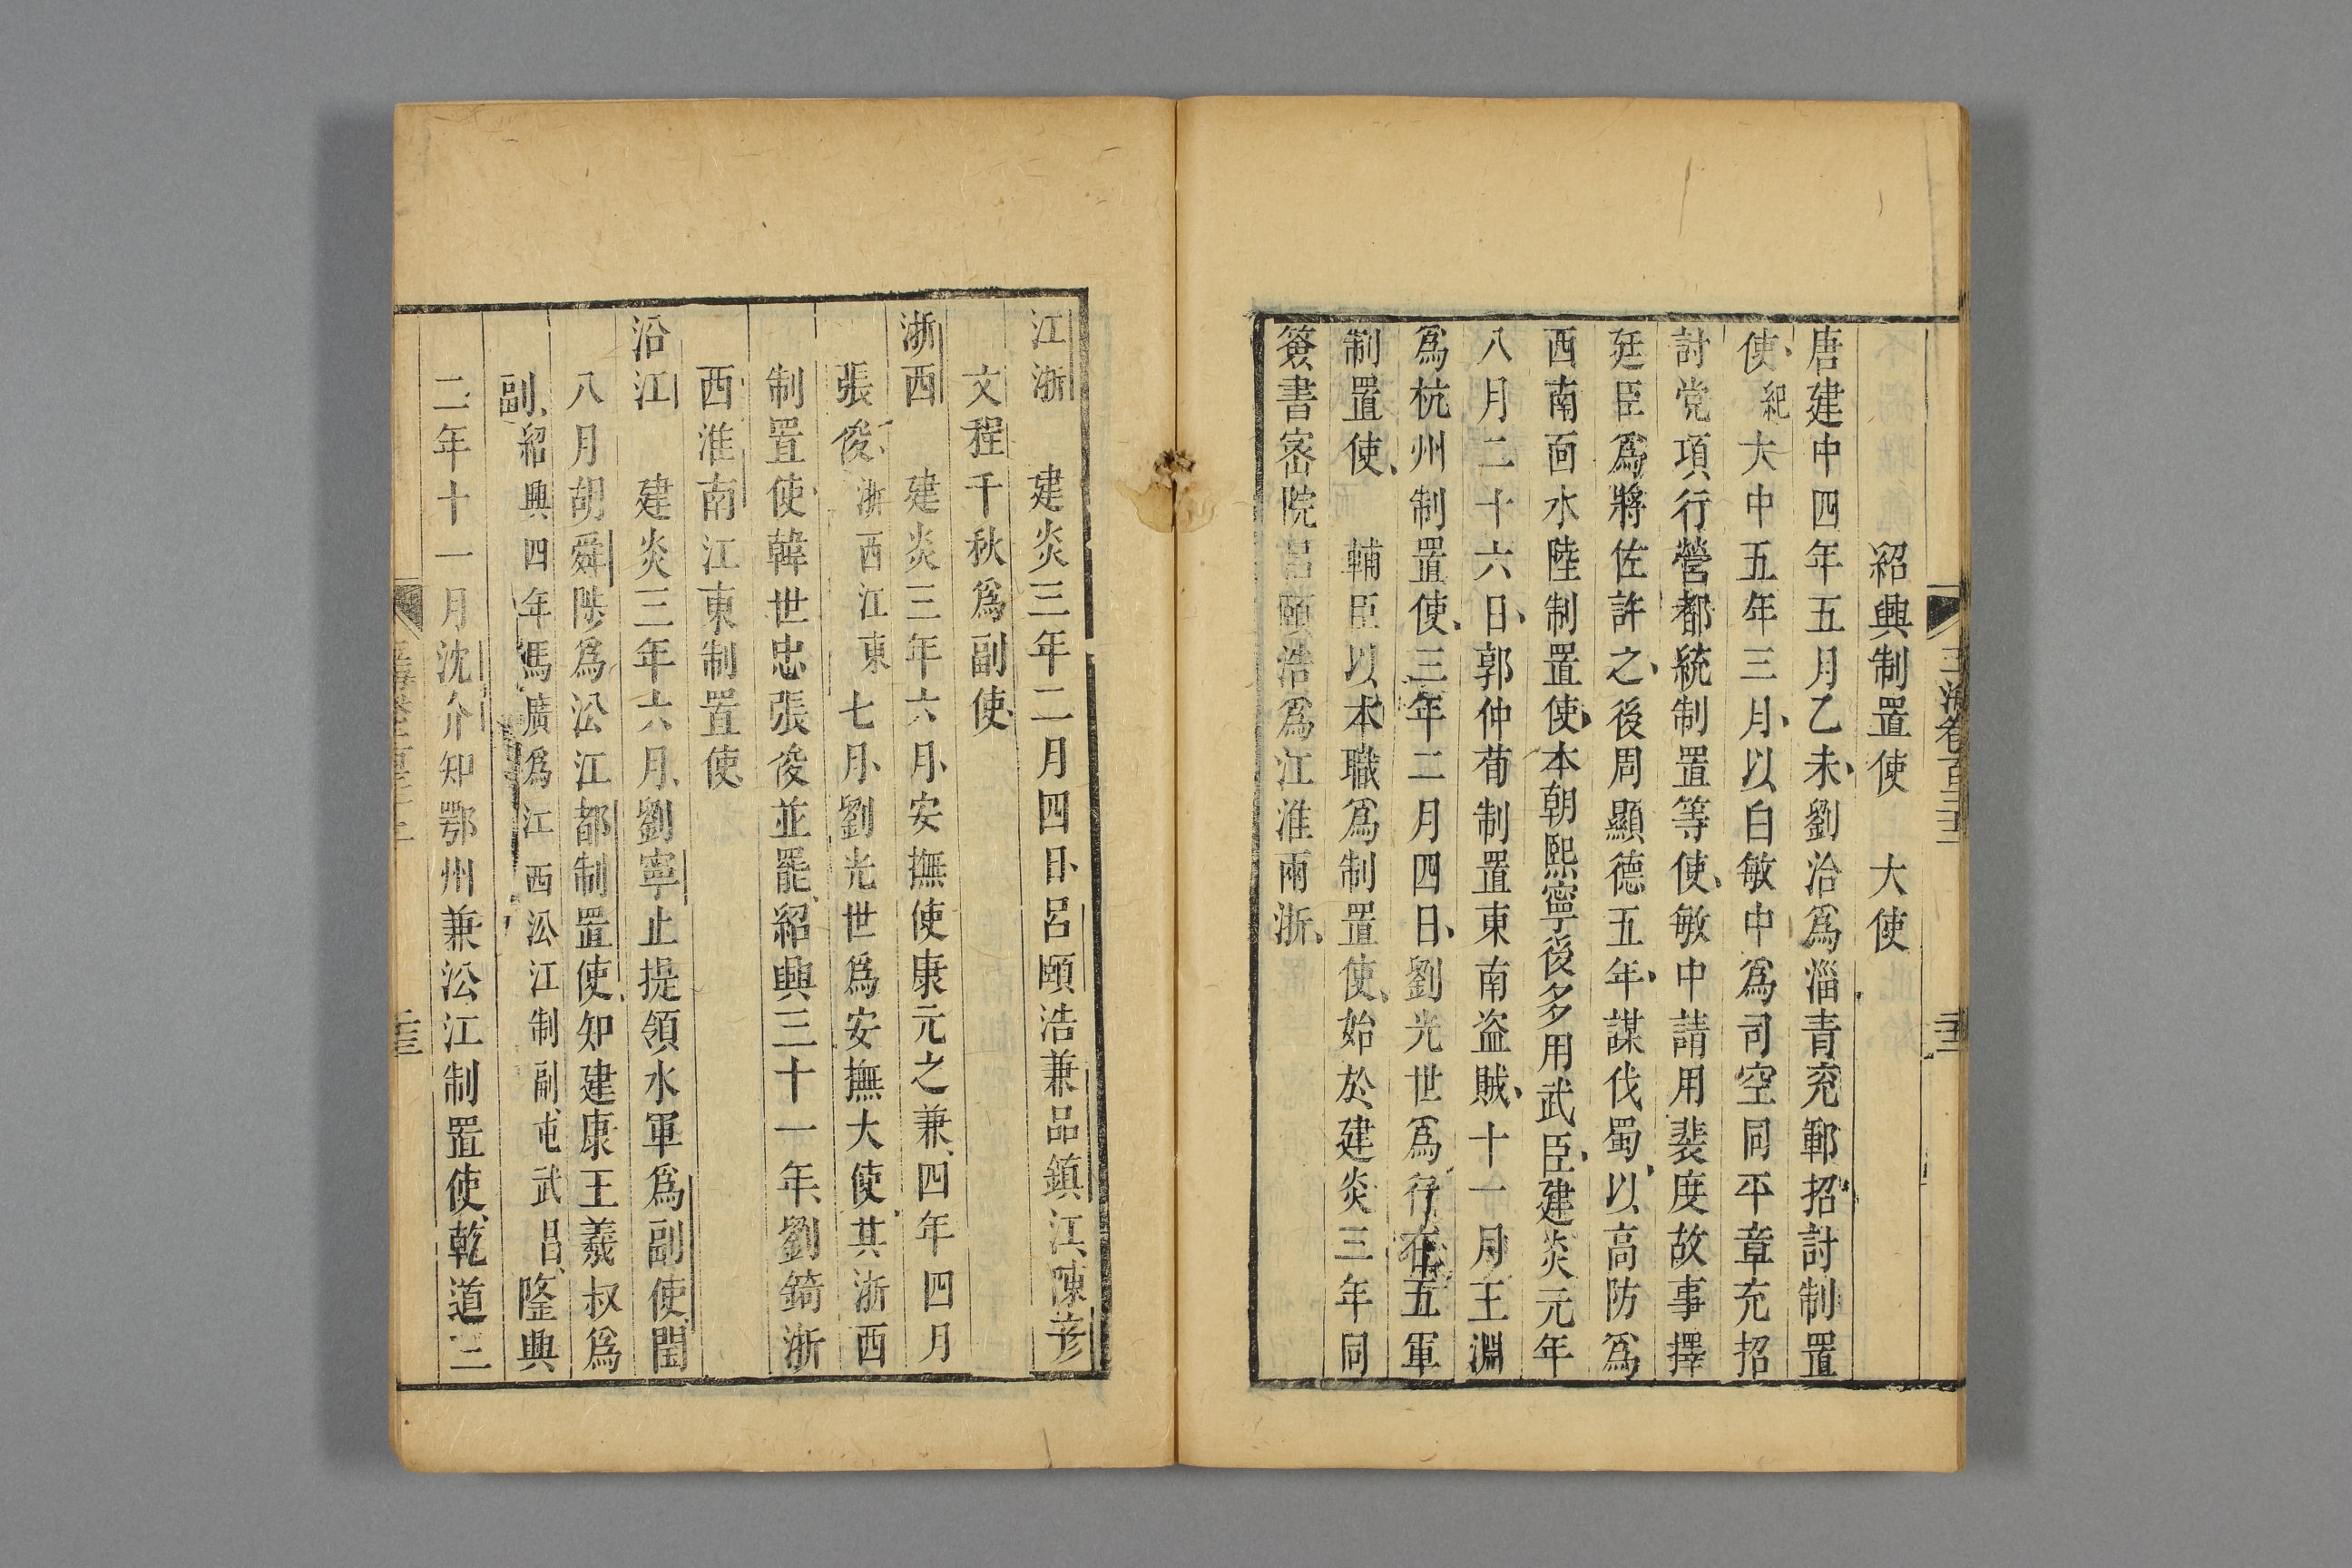 紹興制置使　大使
唐建中四年五月乙未劉洽爲淄青兖鄆招討制置
使紀大中五年三月以白敏中爲司空同平章充招
討党項行營都統制置等使敏中請用裴度故事擇
廷臣爲將佐許之後周顯德五年謀伐蜀以高防爲
西南面水陸制置使本朝熙寧後多用武臣建炎元年
八月二十六日郭仲荀制置東南盗賊十一月王淵
爲杭州制置使三年二月四日劉光世爲行在五軍
制置使　輔臣以本職爲制置使始於建炎三年同
簽書密院呂頤浩爲江淮兩浙
江浙　建炎三年二月四日呂頤浩兼品鎮江陳彦
文程千秋爲副使
浙西　建炎三年六月安撫使康元之兼四年四月
張俊浙西江東七月劉光世爲安撫大使其浙西
制置使韓世忠張俊並罷紹興三十一年劉錡浙
西淮南江東制置使
沿江　建炎三年六月劉寧止提領水軍爲副使閏
八月胡舜陟爲㳂江都制置使知建康王羲叔爲
副紹興四年馬廣爲江西㳂江制副屯武昌隆興
二年十一月沈介知鄂州兼㳂江制置使乾道三